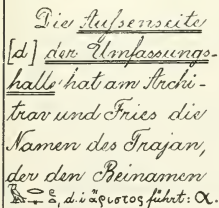 Die Aufsenseite
[d] der Umfassungs-
halle hat am Archi-
trav und Fries die
Namen des Trajan,
der den Beinamen
d.i ἄριστος führt: α.